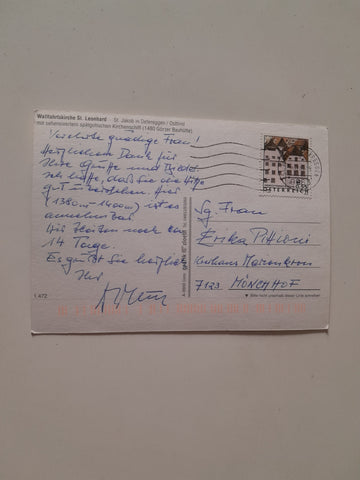 Wallfahrtskirche St. Leonhard - St. Jakob in Defereggen / Osttirol
mit sehenswertem spätgotischen Kirchenschiff (1480 Görzer Bauhütte)
Verehrte gnädige Frau!
Herzlichen Dank für
Ihre Grüße und
ich hoffe, daß Sie die Hitze
gut überstehen. Hier
(1380m - 1400m) ist es
annehmbar
Wir bleiben noch ca
14 Tage.
Es grüßt Sie herzlichst
Ihr
ÖSTERREICH
Sg. Frau
Erika Pittioni
Kurhaus Marienkron
7123 MÖNCHHOF
▼ Bitte nicht unterhalb dieser Linie schreiben
1.472